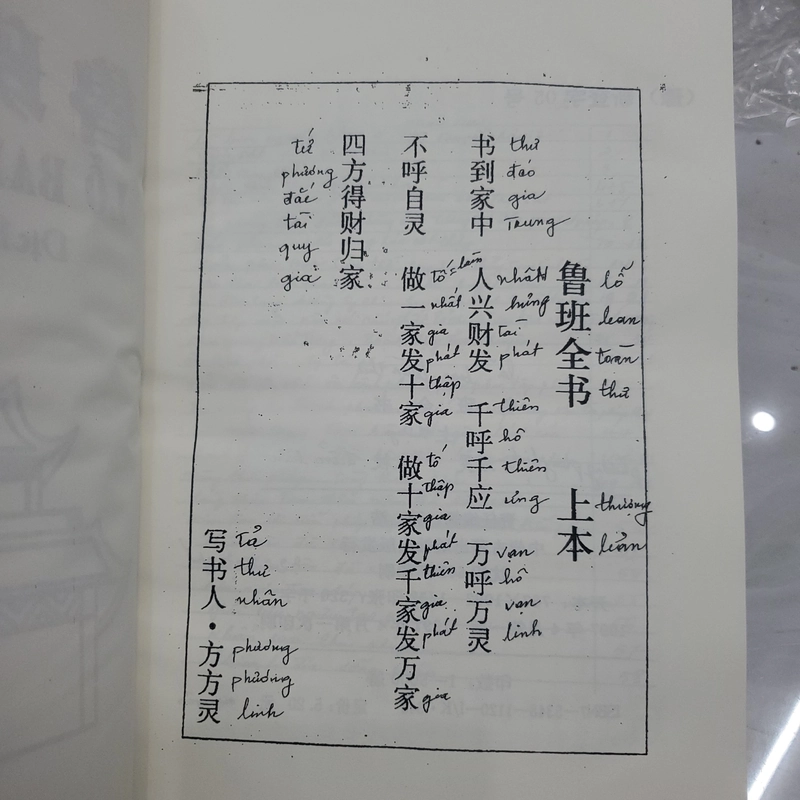 鲁班全书 上本
lỗ ban toàn thư thượng bản
书到家中 人兴财发 千呼千应 万呼万灵
thư đáo gia Trung nhân hưng tài phát thiên hô thiên ứng vạn hô vạn linh
不呼自灵 做一家发十家 做十家发千家发万家
tố nhất gia phát thập gia tố thập gia phát thiên gia phát gia
四方得财归家
tứ phương đắc tài quy gia
写书人·方方灵
tả thư nhân phương phương linh